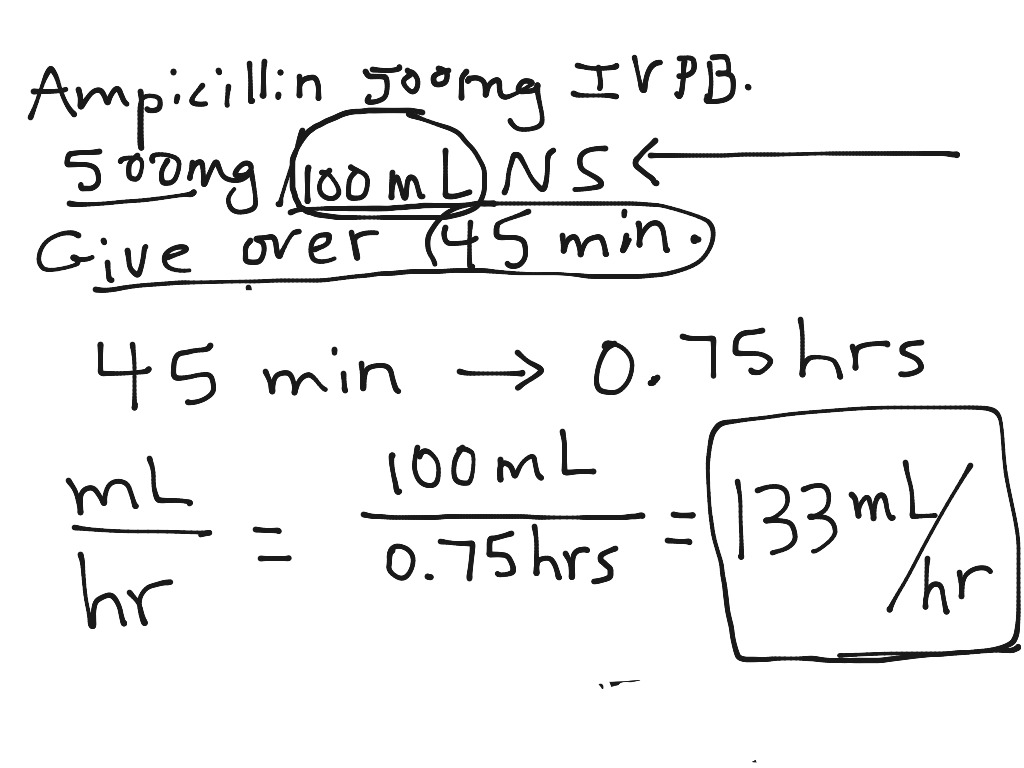 Ampicillin 500mg IVPB.
500mg/100mL NS ←
Give over 45 min.
45 min → 0.75hrs
mL/hr = 100mL/0.75hrs = 133mL/hr